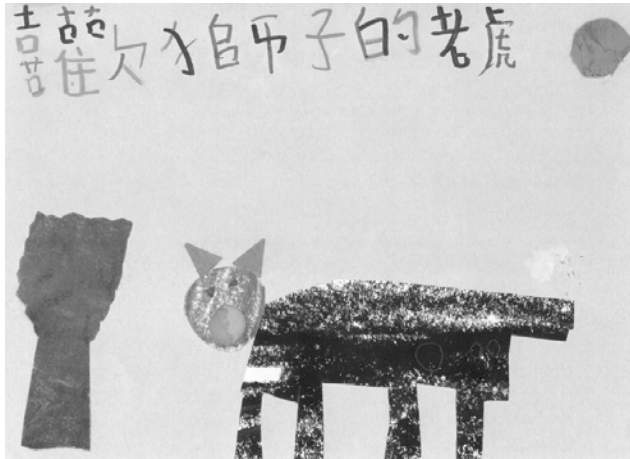 喜歡獅子的老虎